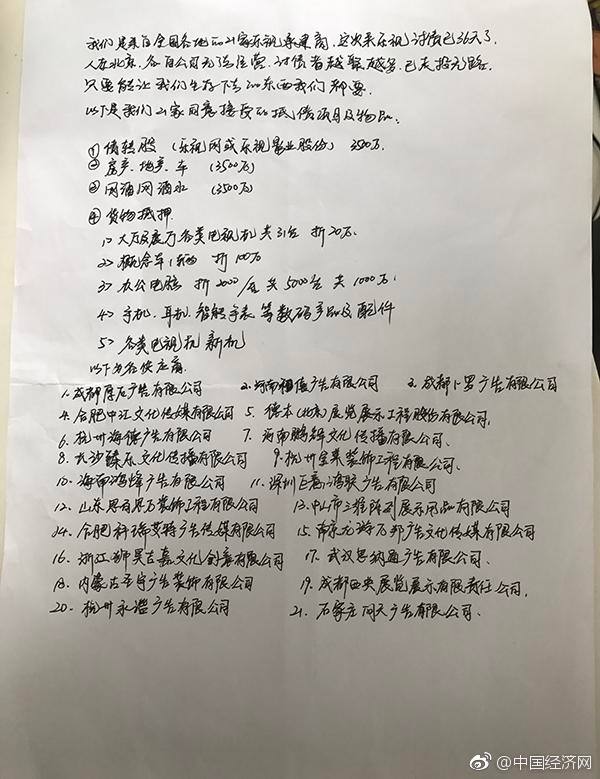 我们是来自全国各地的21家乐视供应商，这次来乐视讨债已36天了，
人在北京，各自公司无法经营，讨债者越聚越多，已走投无路，
只要能让我们生存下去的东西我们都要。
以下是我们21家同意接受的抵债项目及物品：
①债转股（乐视网或乐视影业股份）3500万
②房产、地产、车（3500万）
③网酒网酒水（3500万）
④货物抵押
1>大厅及展厅各类电视机共31台 折20万
2>概念车1辆 折100万
3>办公电脑 折2000/台 共5000台 共1000万
4>手机、耳机、智能手表等数码产品及配件
5>各类电视机新机
以下为各供应商
1.成都原石广告有限公司 2.河南福信广告有限公司 3.成都卜罗广告有限公司
4.合肥中江文化传媒有限公司 5.德本(北京)展览展示工程股份有限公司、
6.杭州海德广告有限公司 7.河南鹏辉文化传播有限公司、
8.长沙臻乐文化传播有限公司 9.杭州金果装饰工程有限公司、
10.海南鸿烽广告有限公司 11.深圳巨嘉鸿联广告有限公司
12.山东思自思万装饰工程有限公司 13.中山市三维陈列展示用品有限公司
14.合肥科瑞艾特广告传媒有限公司 15.南京龙游万邦广告文化传媒有限公司
16.浙江狮昊古嘉文化创意有限公司 17.武汉思纳通广告有限公司、
18.内蒙古圣宇广告装饰有限公司 19.成都西央展览展示有限责任公司、
20.杭州永谐广告有限公司 21.石家庄问天广告有限公司、
@中国经济网